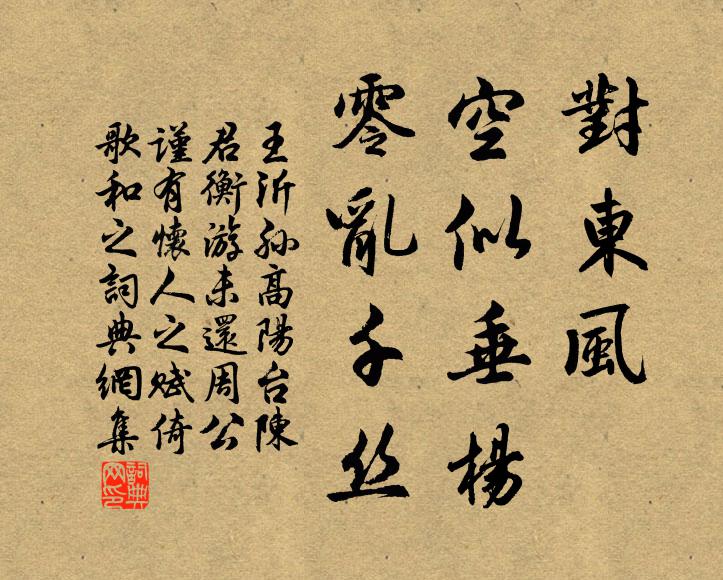 對東風
空似垂楊
零亂千丝
王沂孙高陽台陳
君衡游未還周公
謹有懷人之赋倚
歌和之詞典網集
詞典网印